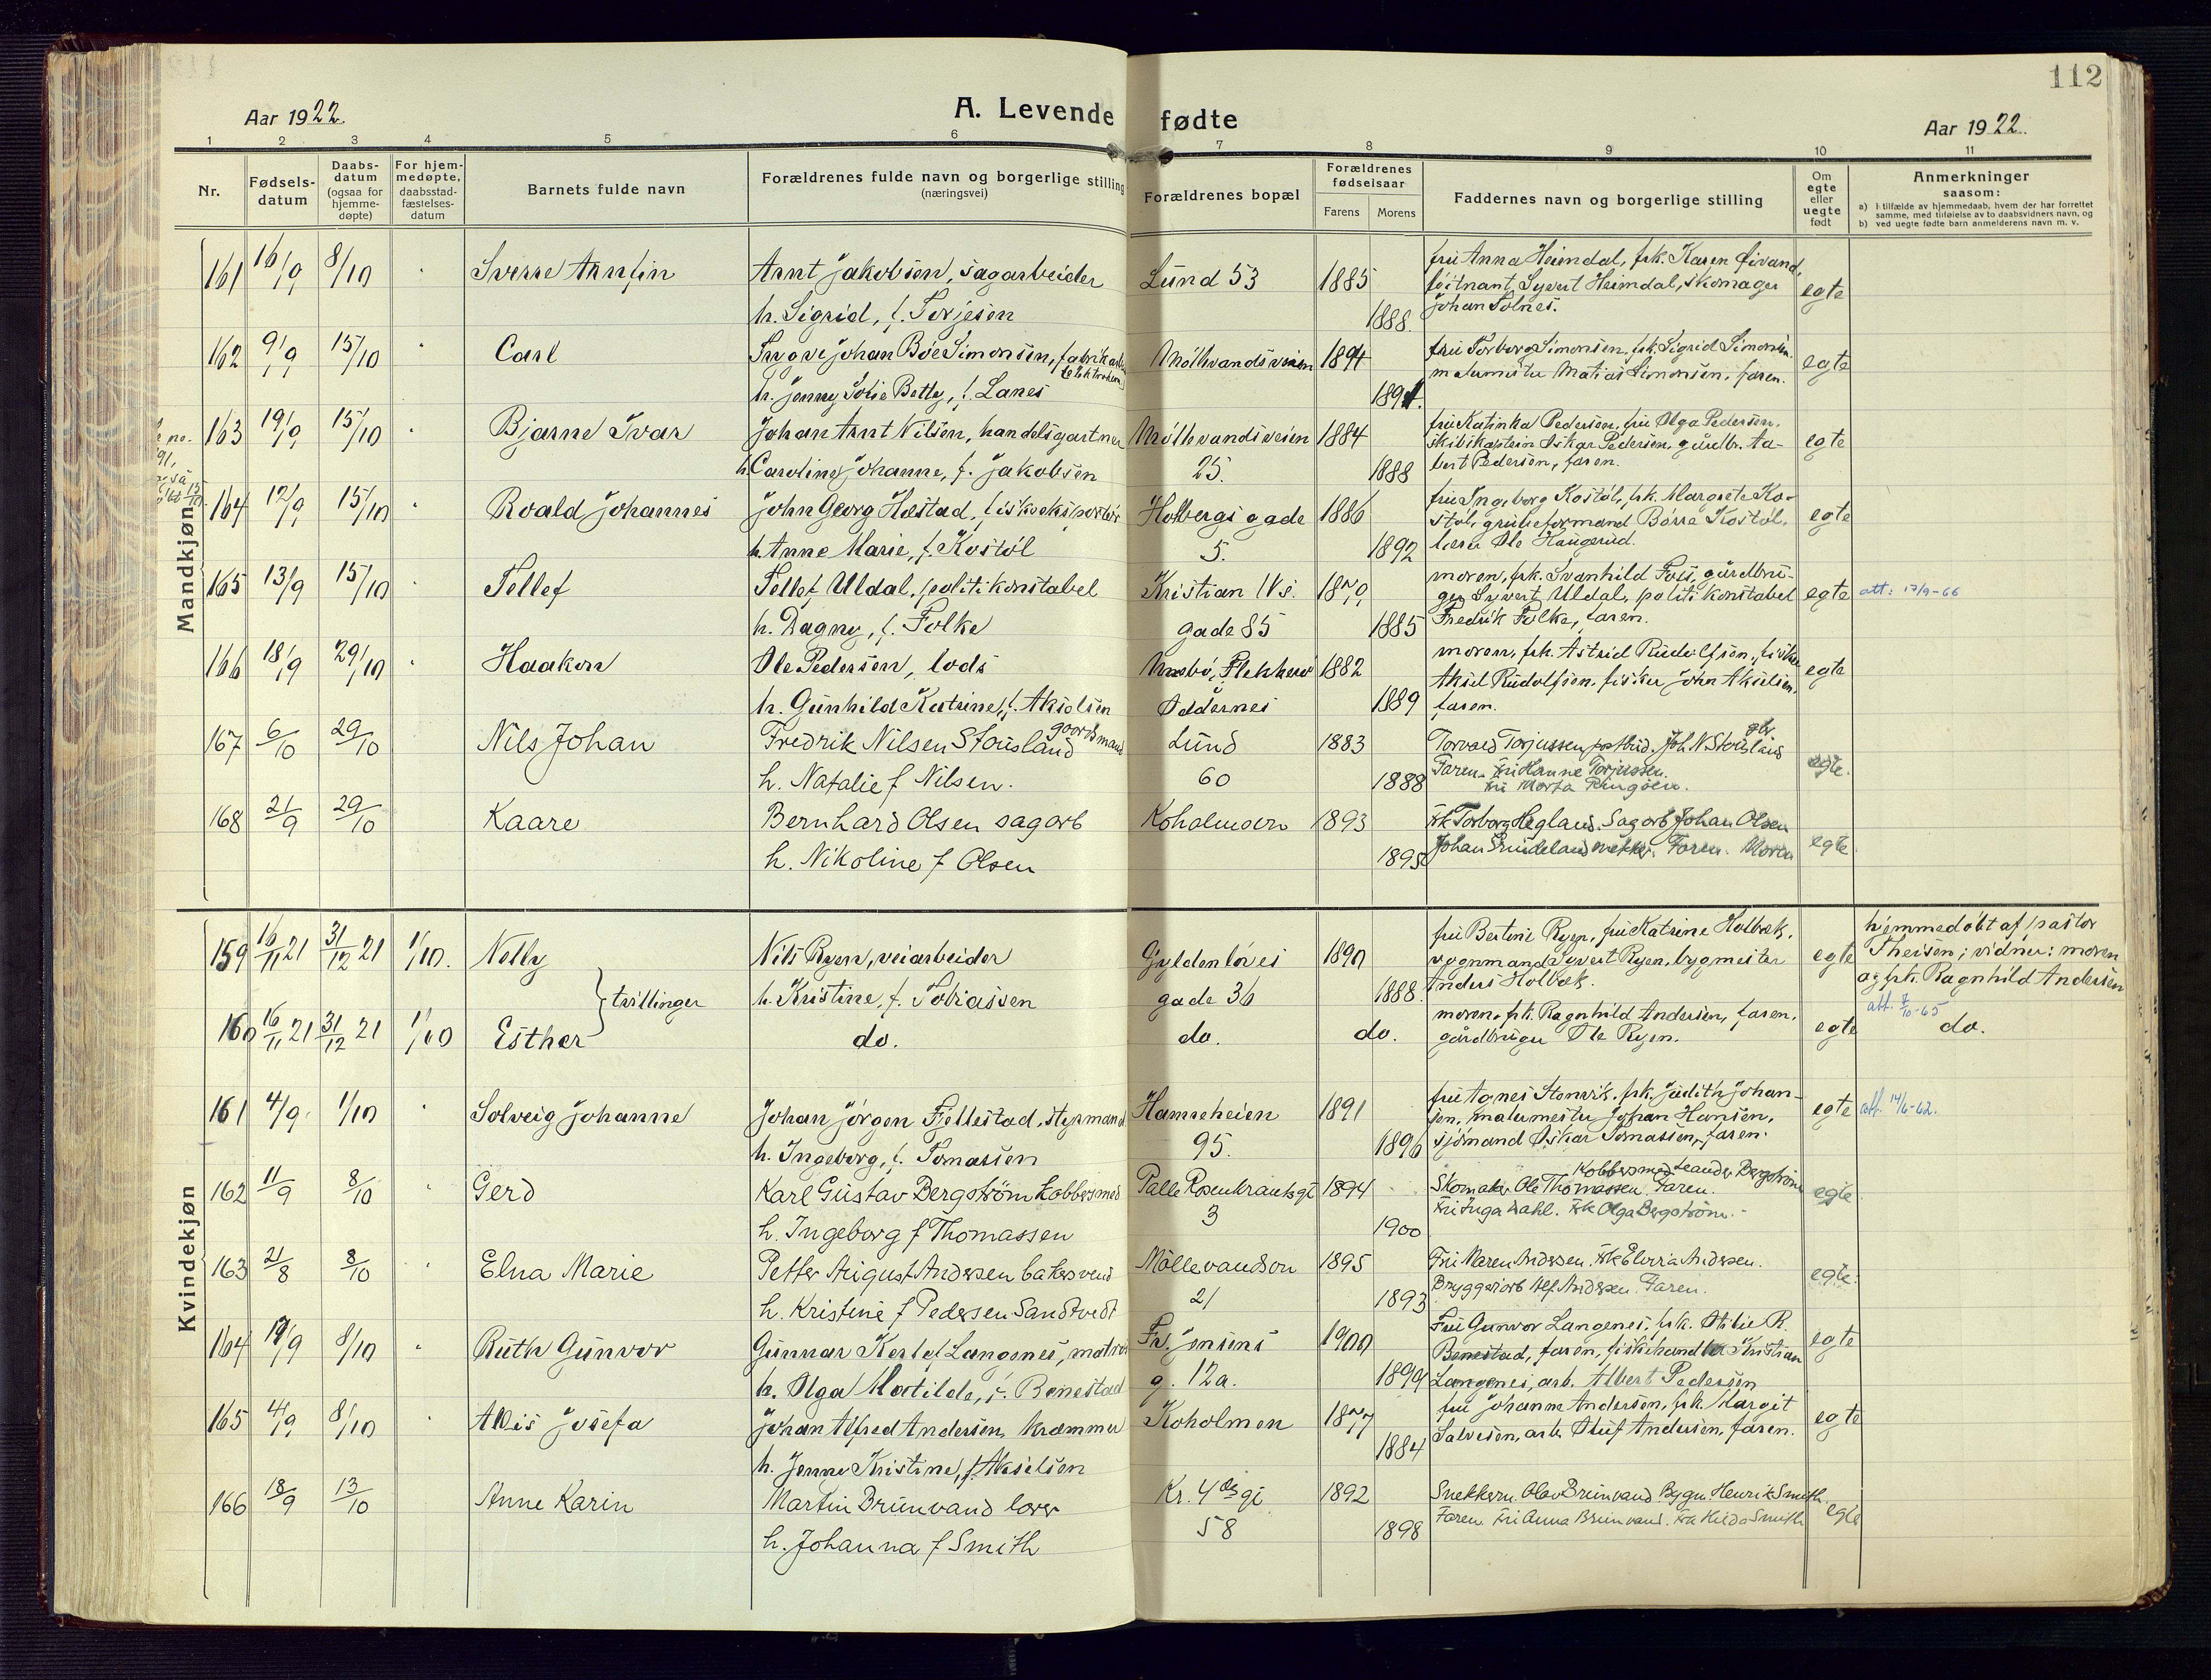 112
Aar 1922.
A. Levende fødte
Aar 1922.
1 2 3 4 5 6 7 8 9 10 11
Nr.
Fødsels-
datum
Daabs-
datum
(ogsaa for
hjemme-
døpte)
For hjem-
medøpte,
daabsstad-
fæstelses-
datum
Barnets fulde navn
Forældrenes fulde navn og borgerlige stilling
(næringsvei)
Forældrenes bopæl
Forældrenes
fødselsaar
Farens Morens
Faddernes navn og borgerlige stilling
Om
egte
eller
uegte
født
Anmerkninger
saasom:
a) I tilfælde av hjemmedaab, hvem der har forrettet
samme, med tilføielse av to daabsvidners navn, og
b) ved uegte fødte barn anmelderens navn m. v.
Mandkjøn
161 16/9 8/10 Sverre Arnfin Arnt Jakobsen, sagarbeider Lund 53 1885 fru Anna Heimdal, frk. Karen
løitnant Syvert Heimdal, skomager egte
h. Sigrid, f. Torjesen 1888. Johan Solnes.
162 9/9 15/10 Carl Trygve Johan Bøe Simonsen, Møllevandsveien 1894 fru Torborg Simonsen, frk. Sigrid Simonsen egte
malermester Matias Simonsen, faren.
h. Jenny Sofie Betty, f. Lanes 1894.
163 19/9 15/10 Bjarne Ivar Johan Arnt Nilsen, handelsgartner Møllevandsveien 1884 fru Katinka Pedersen, fru Olga Pedersen,
skibskaptein Oskar Pedersen, gårdbr. Ta- egte
h. Caroline Johanne, f. Jakobsen 25. 1888 bert Pedersen, faren.
164 12/9 15/10 Roald Johannes John Georg Hæstad, fiskeeksportør Holbergs gade 1886 fru Ingeborg Kostøl, frk. Margrete Ko-
støl, grubeformand Børre Kostøl, egte
h. Anne Marie, f. Kostøl 5. 1892 lærer Ole Haugerud.
165 13/9 15/10 Tellef Tellef Uldal, politikonstabel Kristian IVs. 1879 moren, frk. Svanhild Foss, gårdbru-
ger Syvert Uldal, politikonstabel egte att: 17/9-66
h. Dagny, f. Folke gade 85 1885 Fredrik Folke, faren.
166 18/9 29/10 Haakon Ole Pedersen, lods Mæbø, Flekkerø 1882 moren, frk. Astrid Rudolfsen, fisker egte
Aksel Rudolfsen, fisker John Akselsen,
h. Gunhild Katrine, f. Akselsen Oddernes 1889 faren.
167 6/10 29/10 Nils Johan Fredrik Nilsen Stousland goordsmand Lund 1883 Torvald Torjussen postbud. Joh. N. Stousland gbr.
Faren. Fru Hanne Torjussen. egte.
h. Natalie f Nilsen. 60 1888
168 21/9 29/10 Kaare Bernhard Olsen sagarb Koholmen 1893 Frk Torborg Hegland. Sagarb Johan Olsen
h. Nikoline f Olsen 1895 Faren. Moren egte
Kvindekjøn
159 16/11 21 31/12 21 1/10. Nelly Nils Ryen, veiarbeider Gyldenløves 1890 fru Bertine Ryen, fru Katrine Holbæk, egte hjemmedøbt af pastor
vognmand Syvert Ryen, bygmester Theisen; vidner: moren
tvillinger h. Kristine, f. Tobiassen gade 36 1888. Anders Holbæk. og frk. Ragnhild Andersen
att. 8/10-65
160 16/11 21 31/12 21 1/10 Esther do. do. do. moren, frk. Ragnhild Andersen, faren, egte do.
gårdbruger Ole Ryen.
161 4/9 1/10 Solveig Johanne Johan Jørgen Fjellestad, styrmand Hamreheien 1891 fru Agnes Stenvik, frk. Judith Johan- egte att. 14/6-62.
sen, malermester Johan Hansen,
h. Ingeborg, f. Tomassen 95. 1896 sjømand Oskar Tomassen, faren.
162 11/9 8/10 Gerd Karl Gustav Bergström kobbersmed Palle Rosenkrantsgt 1894 Kobbersmed Leander Bergström
Skomaker Ole Thomassen. Faren. egte
h. Ingeborg f Thomassen 3 1900 Fru Inga Dahl. Frk Olga Bergström.
163 21/8 8/10 Elna Marie Petter August Andersen bakersvend Möllevandsvn 1895 Fru Maren Andersen. Frk Andersen.
Bryggeriarb Alf. Andersen. Faren. egte.
h. Kristine f Pedersen Sandtvedt 21 1893
164 17/9 8/10 Ruth Gunvor Gunnar Kertel Langenes, matros Fr. Jensens 1900 Fru Gunvor Langenes, frk. Otilie R. egte
Benestad, faren, fiskehandler Kristian
h. Olga Matilde, f. Benestad g. 12a. 1899 Langenes, arb. Albert Pedersen
165 4/9 8/10 Allis Josefa Johan Alfred Andersen, kræmmer Koholmen 1877 fru Johanne Andersen, frk. Margit egte
Salvesen, arb. Oluf Andersen, faren.
h. Jenne Kristine, f. Akselsen 1884
166 18/9 13/10 Anne Karin Martin Brunvand lærer Kr. 4des gt 1892 Snekkerm. Olav Brunvand. Bygm. Henrik Smith.
Faren. Fru Anna Brunvand. Frk Hilda Smith egte
h. Johanna f Smith 58 1898